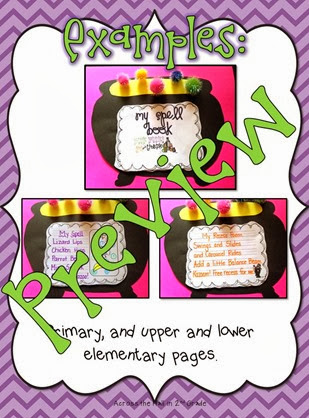 examples:
my spell
book
Preview
My Spell
Lizard Lips
Chicken
Parrot
My Recess
Swings and Slides
and Carousel Rides
Add a little Balance Beam
Kazaam! Free recess for me!
Primary, and upper and lower
elementary pages.
Across the Hall in 2nd Grade